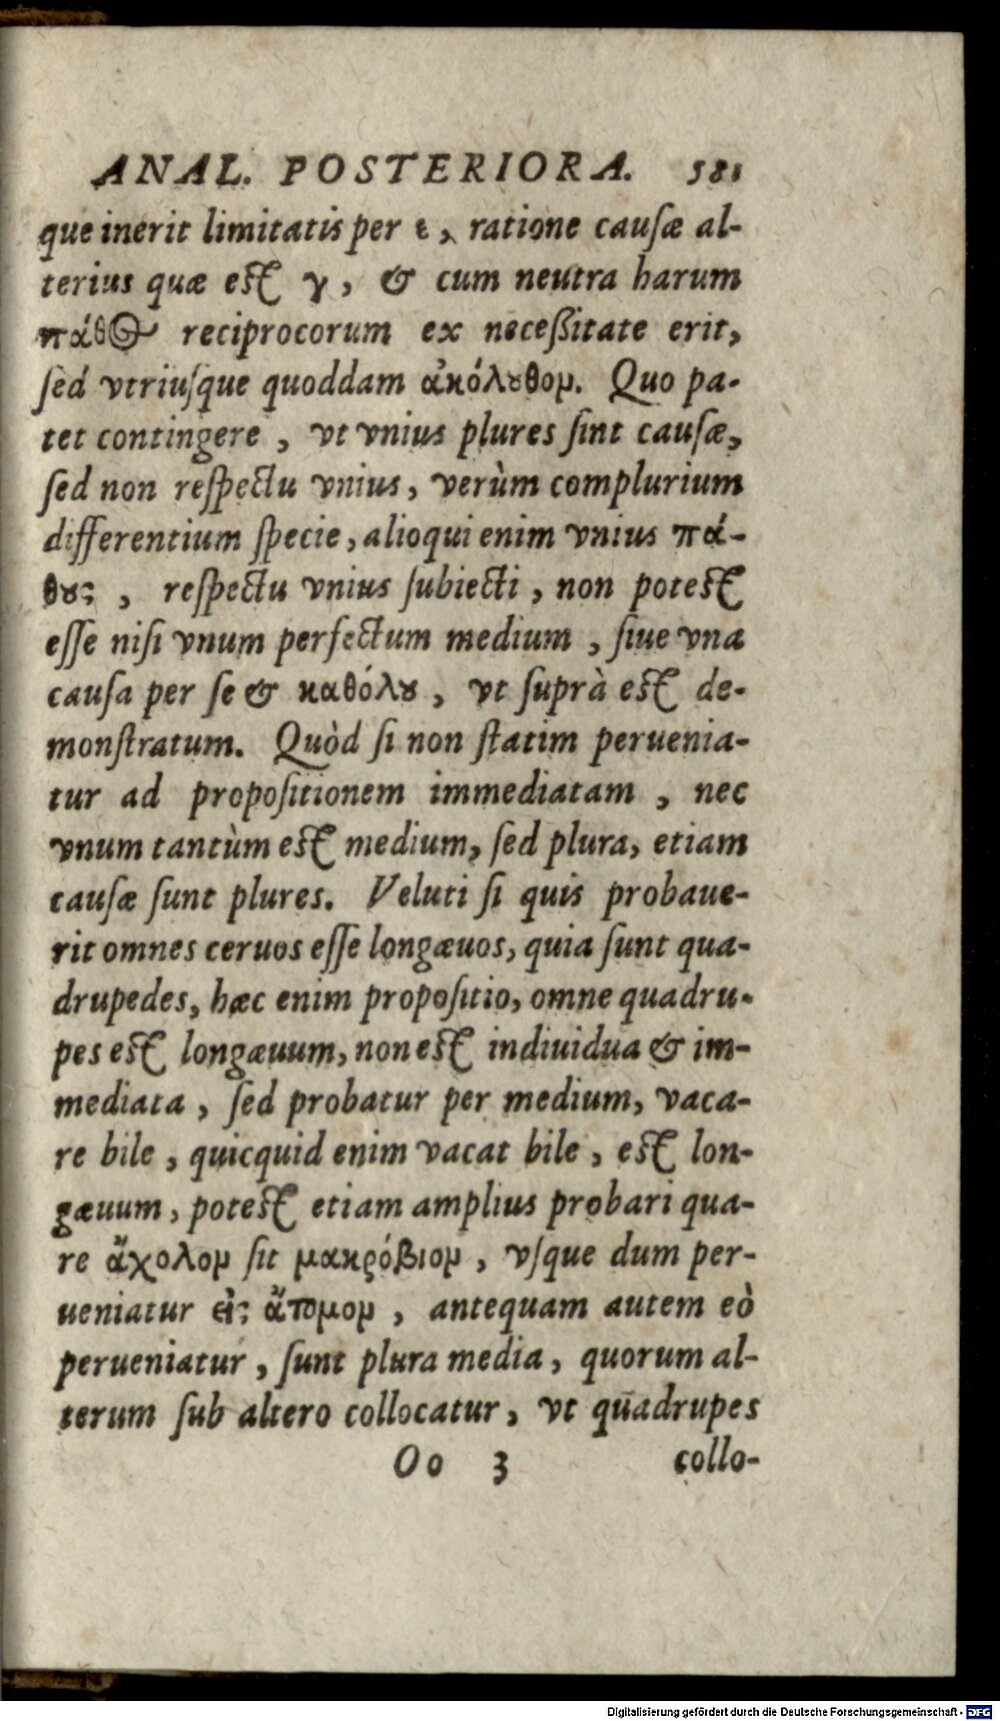 ANAL. POSTERIORA. 581
que inerit limitatis per ε, ratione cauſæ al-
terius quæ eſt γ, & cum neutra harum
πάθος reciprocorum ex neceßitate erit,
ſed vtriuſque quoddam ἀκόλουθον. Quo pa-
tet contingere, vt vnius plures ſint cauſæ,
ſed non reſpectu vnius, verùm complurium
differentium ſpecie, alioqui enim vnius πά-
θους, reſpectu vnius ſubiecti, non poteſt
eſſe niſi vnum perfectum medium, ſiue vna
cauſa per ſe & καθόλου, vt ſuprà eſt de-
monſtratum. Quòd ſi non ſtatim peruenia-
tur ad propoſitionem immediatam, nec
vnum tantùm eſt medium, ſed plura, etiam
cauſæ ſunt plures. Veluti ſi quis probaue-
rit omnes ceruos eſſe longæuos, quia ſunt qua-
drupedes, hæc enim propoſitio, omne quadru-
pes eſt longæuum, non eſt indiuidua & im-
mediata, ſed probatur per medium, vaca-
re bile, quicquid enim vacat bile, eſt lon-
gæuum, poteſt etiam amplius probari qua-
re ἄχολον ſit μακρόβιον, vſque dum per-
ueniatur εἰς ἄτομον, antequam autem eò
perueniatur, ſunt plura media, quorum al-
terum ſub altero collocatur, vt quadrupes
Oo 3 collo-
Digitalisierung gefördert durch die Deutsche Forschungsgemeinschaft - DFG